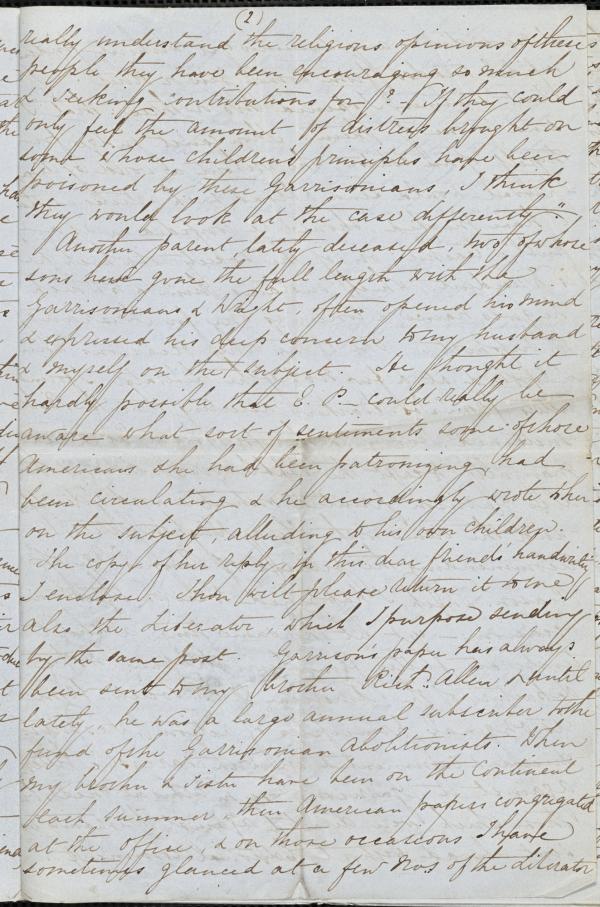 (2)
really understand the religious opinions of these
people they have been encouraging so much
& seeking contributions for? – If they could
only feel the amount of distress brought on
some whose children's principles have been
poisoned by these Garrisonians, I think
they would look at the case differently."
Another parent, lately deceased, two of whose
sons have gone the full length with the
Garrisonians & Wright, often opened his mind
& expressed his deep concern to my husband
& myself on the subject. He thought it
hardly possible that E. P– could really be
aware what sort of sentiments some of those
Americans she had been patronizing, had
been circulating & he accordingly wrote to her
on the subject, alluding to his own children.
The copy of her reply in this dear friend's handwriting
I enclose. Thou will please return it to me
also the Liberator, which I purpose sending
by the same post. Garrison's paper has always
been sent to my brother Richd. Allen & until
lately, he was a large annual subscriber to the
fund of the Garrisonian Abolitionists. When
my brother & sister have been on the Continent
each summer, their American papers congregated
at the office, & on those occasions I have
sometimes glanced at a few Nos. of the Liberator